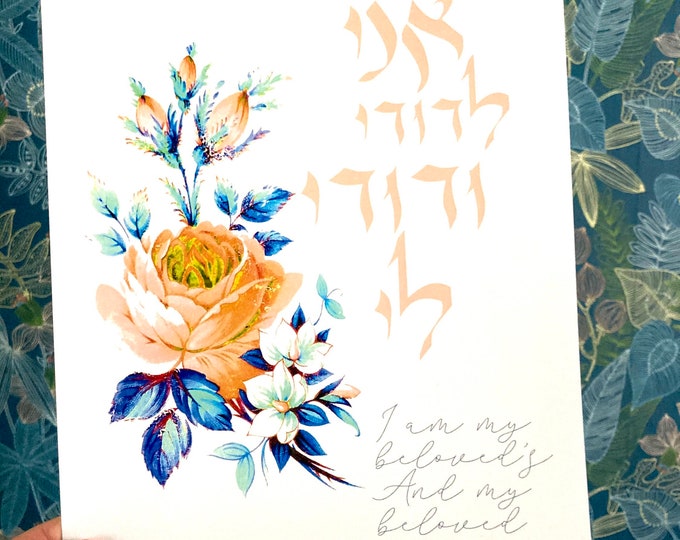 אני
לדודי
ודודי
לי
I am my
beloved's
And my
beloved